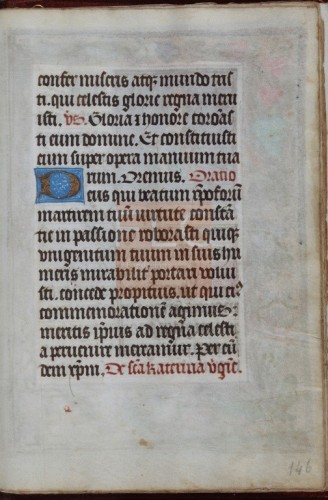 confer miseris atqȝ mundo tris
ti. qui celestis glorie regna meru
isti. vs. Gloria ⁊ honore coronas
ti eum domine. Et constituisti
eum super opera manuum tua
rum. Oremus. Oratio
Deus qui beatum xpoforū
martirem tuū virtute constā
tie in passione roborasti quiqȝ
unigenitum tuum in suis hu
meris mirabilit̾ portari volui
sti. concede propitius. ut qui ei⁹
commemorationem agimus.
meritis ip̄ius ad regna celesti
a peruenire mereamur. Per eū
dem xp̄m. De sc̄a katerina v̾gīe.
146